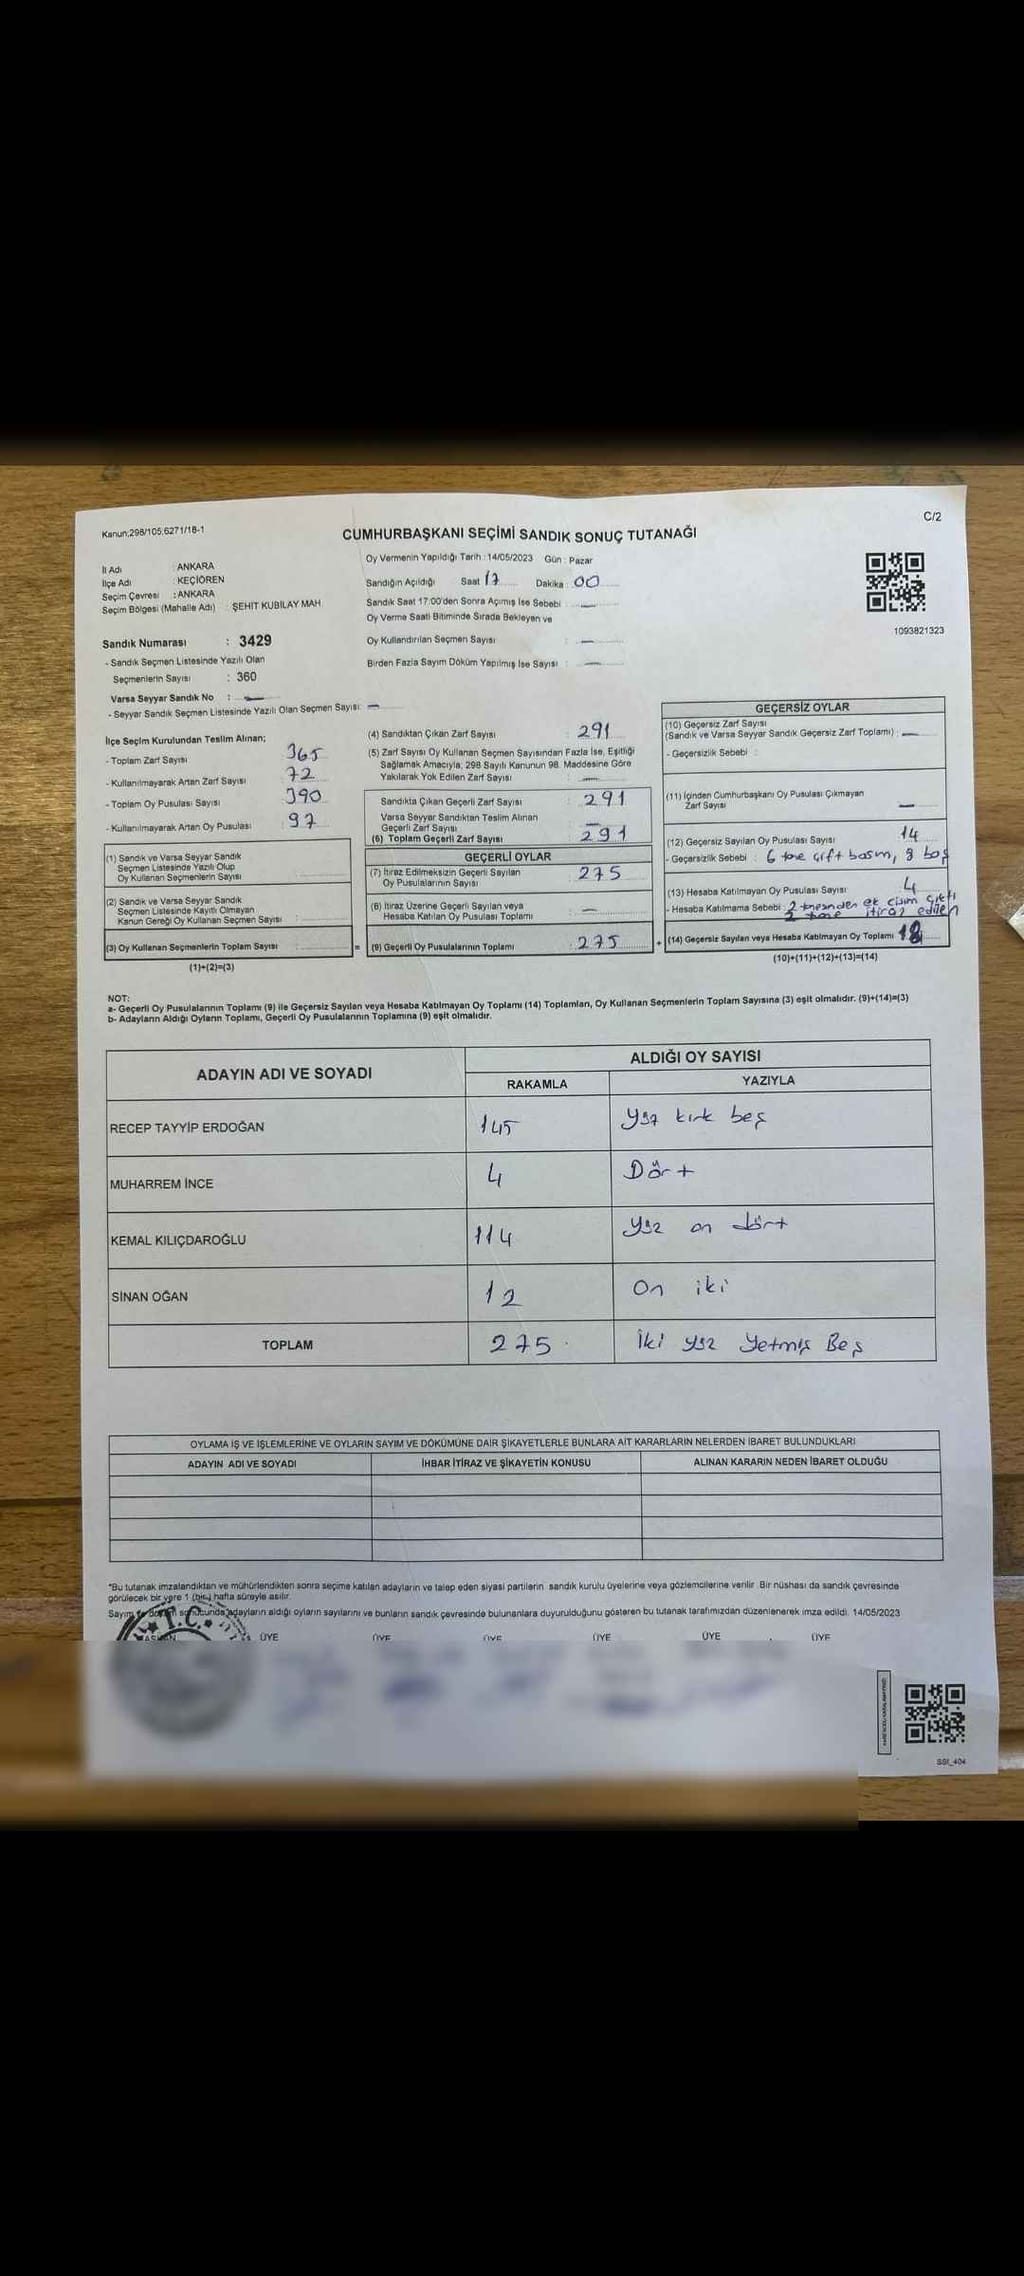 Kanun;298/105;6271/18-1
C/2
CUMHURBAŞKANI SEÇİMİ SANDIK SONUÇ TUTANAĞI
İl Adı : ANKARA
İlçe Adı : KEÇİÖREN
Seçim Çevresi : ANKARA
Seçim Bölgesi (Mahalle Adı) : ŞEHİT KUBİLAY MAH
Oy Vermenin Yapıldığı Tarih : 14/05/2023 Gün : Pazar
Sandığın Açıldığı Saat 17 Dakika : 00
Sandık Saat 17:00'den Sonra Açımış İse Sebebi : —
Oy Verme Saati Bitiminde Sırada Bekleyen ve
Oy Kullandırılan Seçmen Sayısı : —
Birden Fazla Sayım Döküm Yapılmış İse Sayısı : —
1093821323
Sandık Numarası : 3429
- Sandık Seçmen Listesinde Yazılı Olan
Seçmenlerin Sayısı : 360
Varsa Seyyar Sandık No : —
- Seyyar Sandık Seçmen Listesinde Yazılı Olan Seçmen Sayısı: —
İlçe Seçim Kurulundan Teslim Alınan;
- Toplam Zarf Sayısı 365
- Kullanılmayarak Artan Zarf Sayısı : 72
- Toplam Oy Pusulası Sayısı : 390
- Kullanılmayarak Artan Oy Pusulası : 97
(1) Sandık ve Varsa Seyyar Sandık
Seçmen Listesinde Yazılı Olup
Oy Kullanan Seçmenlerin Sayısı :
(2) Sandık ve Varsa Seyyar Sandık
Seçmen Listesinde Kayıtlı Olmayan
Kanun Gereği Oy Kullanan Seçmen Sayısı :
(3) Oy Kullanan Seçmenlerin Toplam Sayısı :
(1)+(2)=(3)
(4) Sandıktan Çıkan Zarf Sayısı : 291
(5) Zarf Sayısı Oy Kullanan Seçmen Sayısından Fazla İse, Eşitliği
Sağlamak Amacıyla; 298 Sayılı Kanunun 98. Maddesine Göre
Yakılarak Yok Edilen Zarf Sayısı : —
Sandıkta Çıkan Geçerli Zarf Sayısı : 291
Varsa Seyyar Sandıktan Teslim Alınan
Geçerli Zarf Sayısı : —
(6) Toplam Geçerli Zarf Sayısı : 291
GEÇERLİ OYLAR
(7) İtiraz Edilmeksizin Geçerli Sayılan
Oy Pusulalarının Sayısı : 275
(8) İtiraz Üzerine Geçerli Sayılan veya
Hesaba Katılan Oy Pusulası Toplamı : —
= (9) Geçerli Oy Pusulalarının Toplamı : 275
GEÇERSİZ OYLAR
(10) Geçersiz Zarf Sayısı
(Sandık ve Varsa Seyyar Sandık Geçersiz Zarf Toplamı) : —
- Geçersizlik Sebebi :
(11) İçinden Cumhurbaşkanı Oy Pusulası Çıkmayan
Zarf Sayısı —
(12) Geçersiz Sayılan Oy Pusulası Sayısı : 14
- Geçersizlik Sebebi : 6 tane çift basım, 8 boş
(13) Hesaba Katılmayan Oy Pusulası Sayısı : 4
- Hesaba Katılmama Sebebi : 2 tanesinden ek cisim çıktı
2 tane itiraz edilen
+ (14) Geçersiz Sayılan veya Hesaba Katılmayan Oy Toplamı 18
(10)+(11)+(12)+(13)=(14)
NOT:
a- Geçerli Oy Pusulalarının Toplamı (9) ile Geçersiz Sayılan veya Hesaba Katılmayan Oy Toplamı (14) Toplamları, Oy Kullanan Seçmenlerin Toplam Sayısına (3) eşit olmalıdır. (9)+(14)=(3)
b- Adayların Aldığı Oyların Toplamı, Geçerli Oy Pusulalarının Toplamına (9) eşit olmalıdır.
ADAYIN ADI VE SOYADI
ALDIĞI OY SAYISI
RAKAMLA YAZIYLA
RECEP TAYYİP ERDOĞAN 145 Yüz kırk beş
MUHARREM İNCE 4 Dört
KEMAL KILIÇDAROĞLU 114 Yüz on dört
SİNAN OĞAN 12 On iki
TOPLAM 275 İki yüz yetmiş Beş
OYLAMA İŞ VE İŞLEMLERİNE VE OYLARIN SAYIM VE DÖKÜMÜNE DAİR ŞİKAYETLERLE BUNLARA AİT KARARLARIN NELERDEN İBARET BULUNDUKLARI
ADAYIN ADI VE SOYADI İHBAR İTİRAZ VE ŞİKAYETİN KONUSU ALINAN KARARIN NEDEN İBARET OLDUĞU
*Bu tutanak imzalandıktan ve mühürlendikten sonra seçime katılan adayların ve talep eden siyasi partilerin sandık kurulu üyelerine veya gözlemcilerine verilir. Bir nüshası da sandık çevresinde
görülecek bir yere 1 (bir) hafta süreyle asılır.
Sayım ve döküm sonucunda adayların aldığı oyların sayılarını ve bunların sandık çevresinde bulunanlara duyurulduğunu gösteren bu tutanak tarafımızdan düzenlenerek imza edildi. 14/05/2023
T.C.
ÜYE ÜYE ÜYE ÜYE ÜYE ÜYE
SSI_404